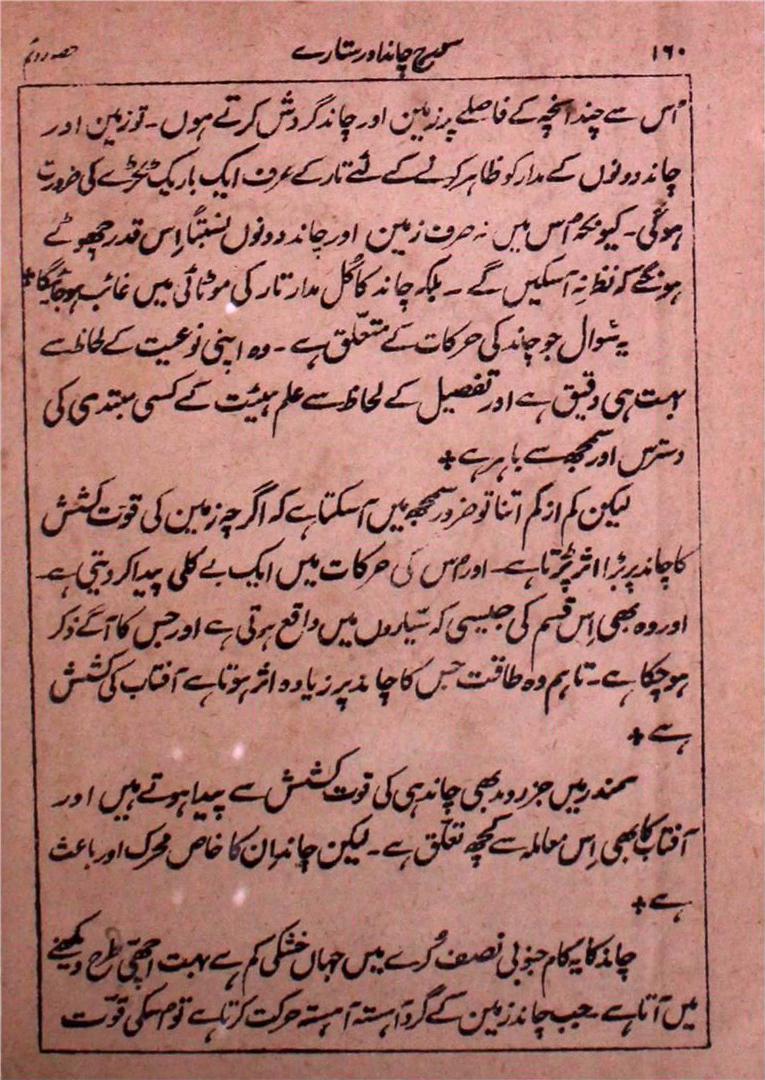 ۱۶۰ سورج چاند اور ستارے حصہ دوم
اُس سے چند انچہ کے فاصلے پر زمین اور چاند گردش کرتے ہوں۔ تو زمین اور
چاند دونوں کے مدار کو ظاہر کرنے کے لئے تار کے صرف ایک باریک ٹکڑے کی ضرورت
ہوگی۔ کیونکہ اس میں نہ صرف زمین اور چاند دونوں نسبتاً اِس قدر چھوٹے
ہونگے کہ نظر نہ آسکیں گے۔ بلکہ چاند کا کُل مدار تار کی موٹائی میں غائب ہوجائیگا +
یہ سُوال جو چاند کی حرکات کے متعلّق ہے۔ وہ اپنی نوعیت کے لحاظ سے
بہت ہی دقیق ہے اور تفصیل کے لحاظ سے علم ہیئت کے کسی مبتدی کی
دسترس اور سمجھ سے باہر ہے +
لیکن کم از کم اتنا تو ضرور سمجھ میں آسکتا ہے کہ اگرچہ زمین کی قوّت کشش
کا چاند پر بڑا اثر پڑتا ہے۔ اور اُس کی حرکات میں ایک بے کلی پیدا کر دیتی ہے۔
اور وہ بھی اِس قسم کی جیسی کہ سیّاروں میں واقع ہوتی ہے اور جس کا آگے ذکر
ہو چکا ہے۔ تاہم وہ طاقت جس کا چاند پر زیادہ اثر ہوتا ہے آفتاب کی کشش
ہے +
سمندر میں جزر و مد بھی چاند ہی کی قوت کشش سے پیدا ہوتے ہیں اور
آفتاب کا بھی اِس معاملہ سے کچھ تعلّق ہے۔ لیکن چاند اِن کا خاص محرک اور باعث
ہے +
چاند کا یہ کام جنوبی نصف کُرے میں جہاں خشکی کم ہے بہت اچھّی طرح دیکھنے
میں آتا ہے۔ جب چاند زمین کے گرد آہستہ آہستہ حرکت کرتا ہے تو اُسکی قوّت